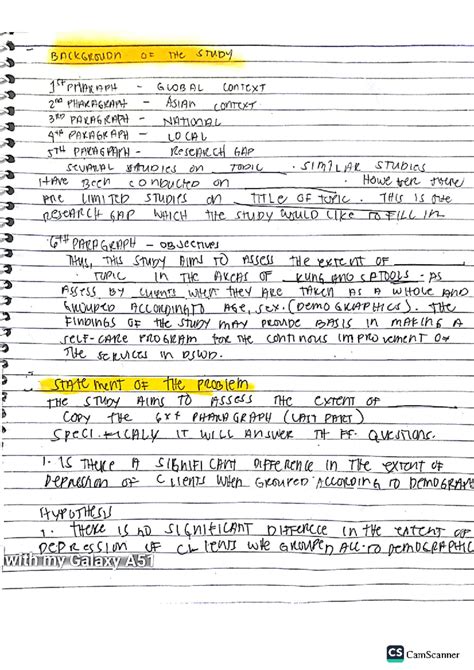 BACKGROUDN OF THE STUDY
1ST PHARAPH - GLOBAL CONTEXT
2ND PHARAGRAPH - ASIAN CONTEXT
3RD PARAGRAPH - NATIONAL
4TH PARAGRAPH - LOCAL
5TH PARAGRAPH - RESEARCH GAP
SEVERAL STUDIES ON TOPIC . SIMILAR STUDIES
HAVE BEEN CONDUCTED ON ________. HOWEVER THERE
ARE LIMITED STUDIES ON TITLE OF TOPIC. THIS IS THE
RESEARCH GAP WHICH THE STUDY WOULD LIKE TO FILL IN.
6TH PARAGRAPH - OBJECTIVES
THUS, THIS STUDY AIMS TO ASSESS THE EXTENT OF ________
TOPIC IN THE AREAS OF KUNG ANG . AS
ASSESS BY CLIENTS WHEN THEY ARE TAKEN AS A WHOLE AND
GROUPED ACCORDING TO AGE, SEX. (DEMOGRAPHICS). THE
FINDINGS OF THE STUDY MAY PROVIDE BASIS IN MAKING A
SELF-CARE PROGRAM FOR THE CONTINOUS IMPROVEMENT OF
THE SERVICES IN DSWD.
STATEMENT OF THE PROBLEM
THE STUDY AIMS TO ASSESS THE EXTENT OF ________
COPY THE 6XT PHARAGRAPH (LAST PART)
SPECIFICALY IT WILL ANSWER TH FF. QUESTIONS.
1. IS THERE A SIGNIFICANT DIFFERENCE IN THE EXTENT OF
DEPRESSION OF CLIENTS WHEN GROUPED ACCORDING TO DEMOGRAP
HYPOTHESIS
1. THERE IS NO SIGNIFICANT DIFFERENCE IN THE EXTENT OF
DEPRESSION OF CLIENTS GROUPED ACC. TO DEMOGRAPHIC
with my Galaxy A51
CS CamScanner